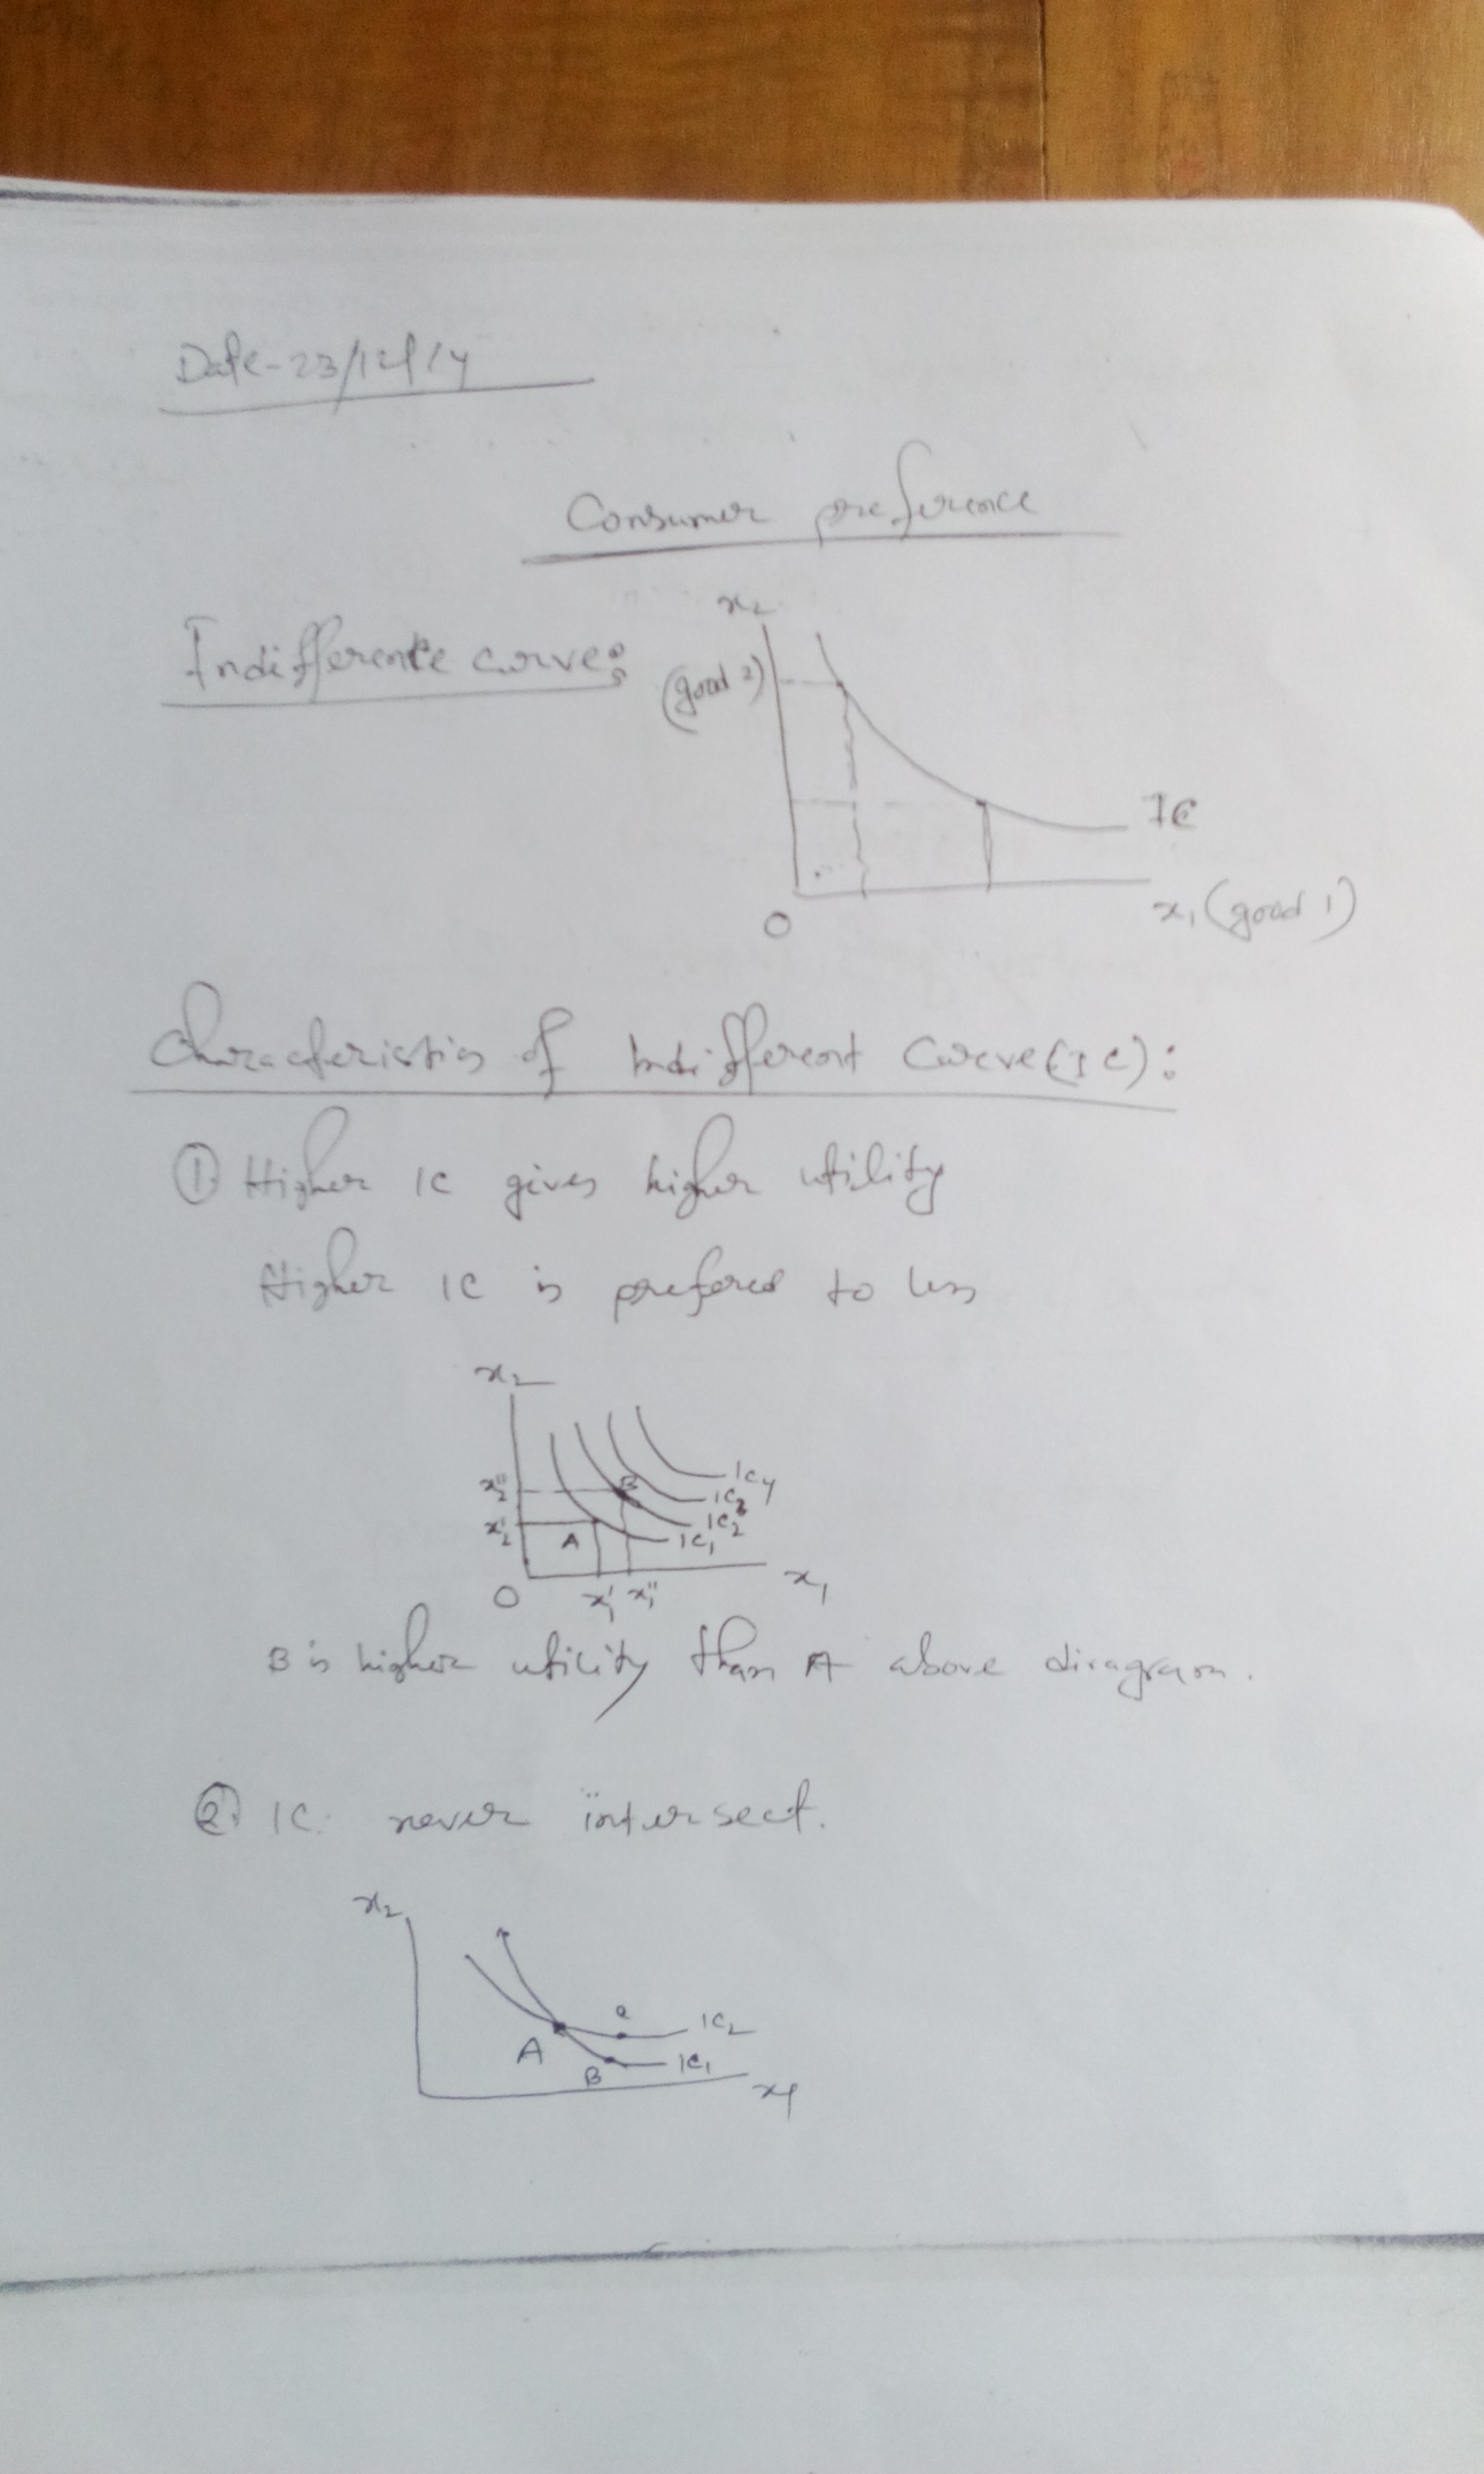 Date-23/12/14
Consumer preference
Indifference curve:
x2
(good 2)
IC
O
x1 (good 1)
Characteristics of Indifferent Curve (IC):
① Higher IC gives higher utility
Higher IC is prefered to less
x2
IC4
x2''
B
IC3
x2'
IC2
A
IC1
O
x1'
x1''
x1
B is higher utility than A above diragram.
② IC. never intersect.
x2
c
IC2
A
B
IC1
x1